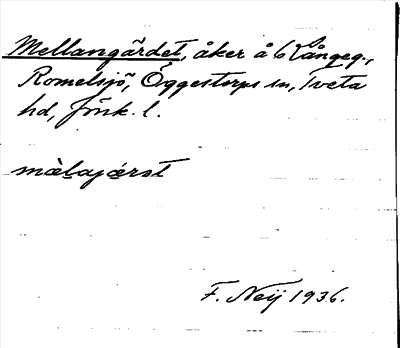 Mellangärdet, åker å Långeg.,
Romelsjö, Öggestorps sn, Tveta
hd, Jönk. l.
mælajærst
F. Neij 1936.